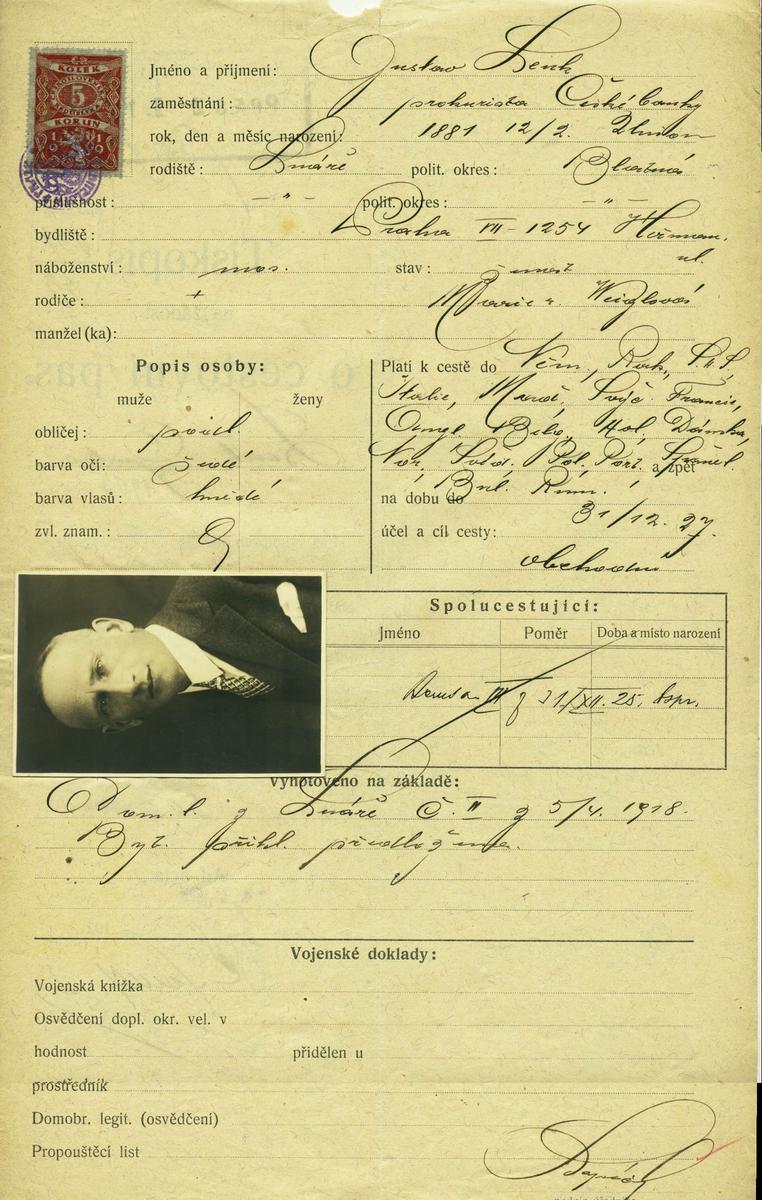 KOLEK
5
KORUN
Jméno a přijmení: Gustav Lenk
zaměstnání: prokurista České banky
rok, den a měsíc narození: 1881 12/2.
rodiště: Lnáře polit. okres: Blatná
příslušnost: — " — polit. okres: — " —
bydliště: Praha VII - 1254 Heřman. ul.
náboženství: mos. stav:
rodiče: + Marie r. Weiglová
manžel (ka):
Popis osoby:
muže ženy
obličej: podl.
barva očí: šedé
barva vlasů: hnědé
zvl. znam.:
Platí k cestě do Něm., Rak.,
Italie, Maď., Švýc. Francie,
Angl. Belg., Hol., Dánska,
Nor., Pol., Port. a zpět Španěl.
Rum.
na dobu do 31/12. 27.
účel a cíl cesty:
obchodní
Spolucestující:
Jméno Poměr Doba a místo narození
III z 31/XII. 25.
Vyhotoveno na základě:
Dom. l. z Lnáře č. II z 5/4. 1918.
Byt. přihl. předložena.
Vojenské doklady:
Vojenská knížka
Osvědčení dopl. okr. vel. v
hodnost přidělen u
prostředník
Domobr. legit. (osvědčení)
Propouštěcí list